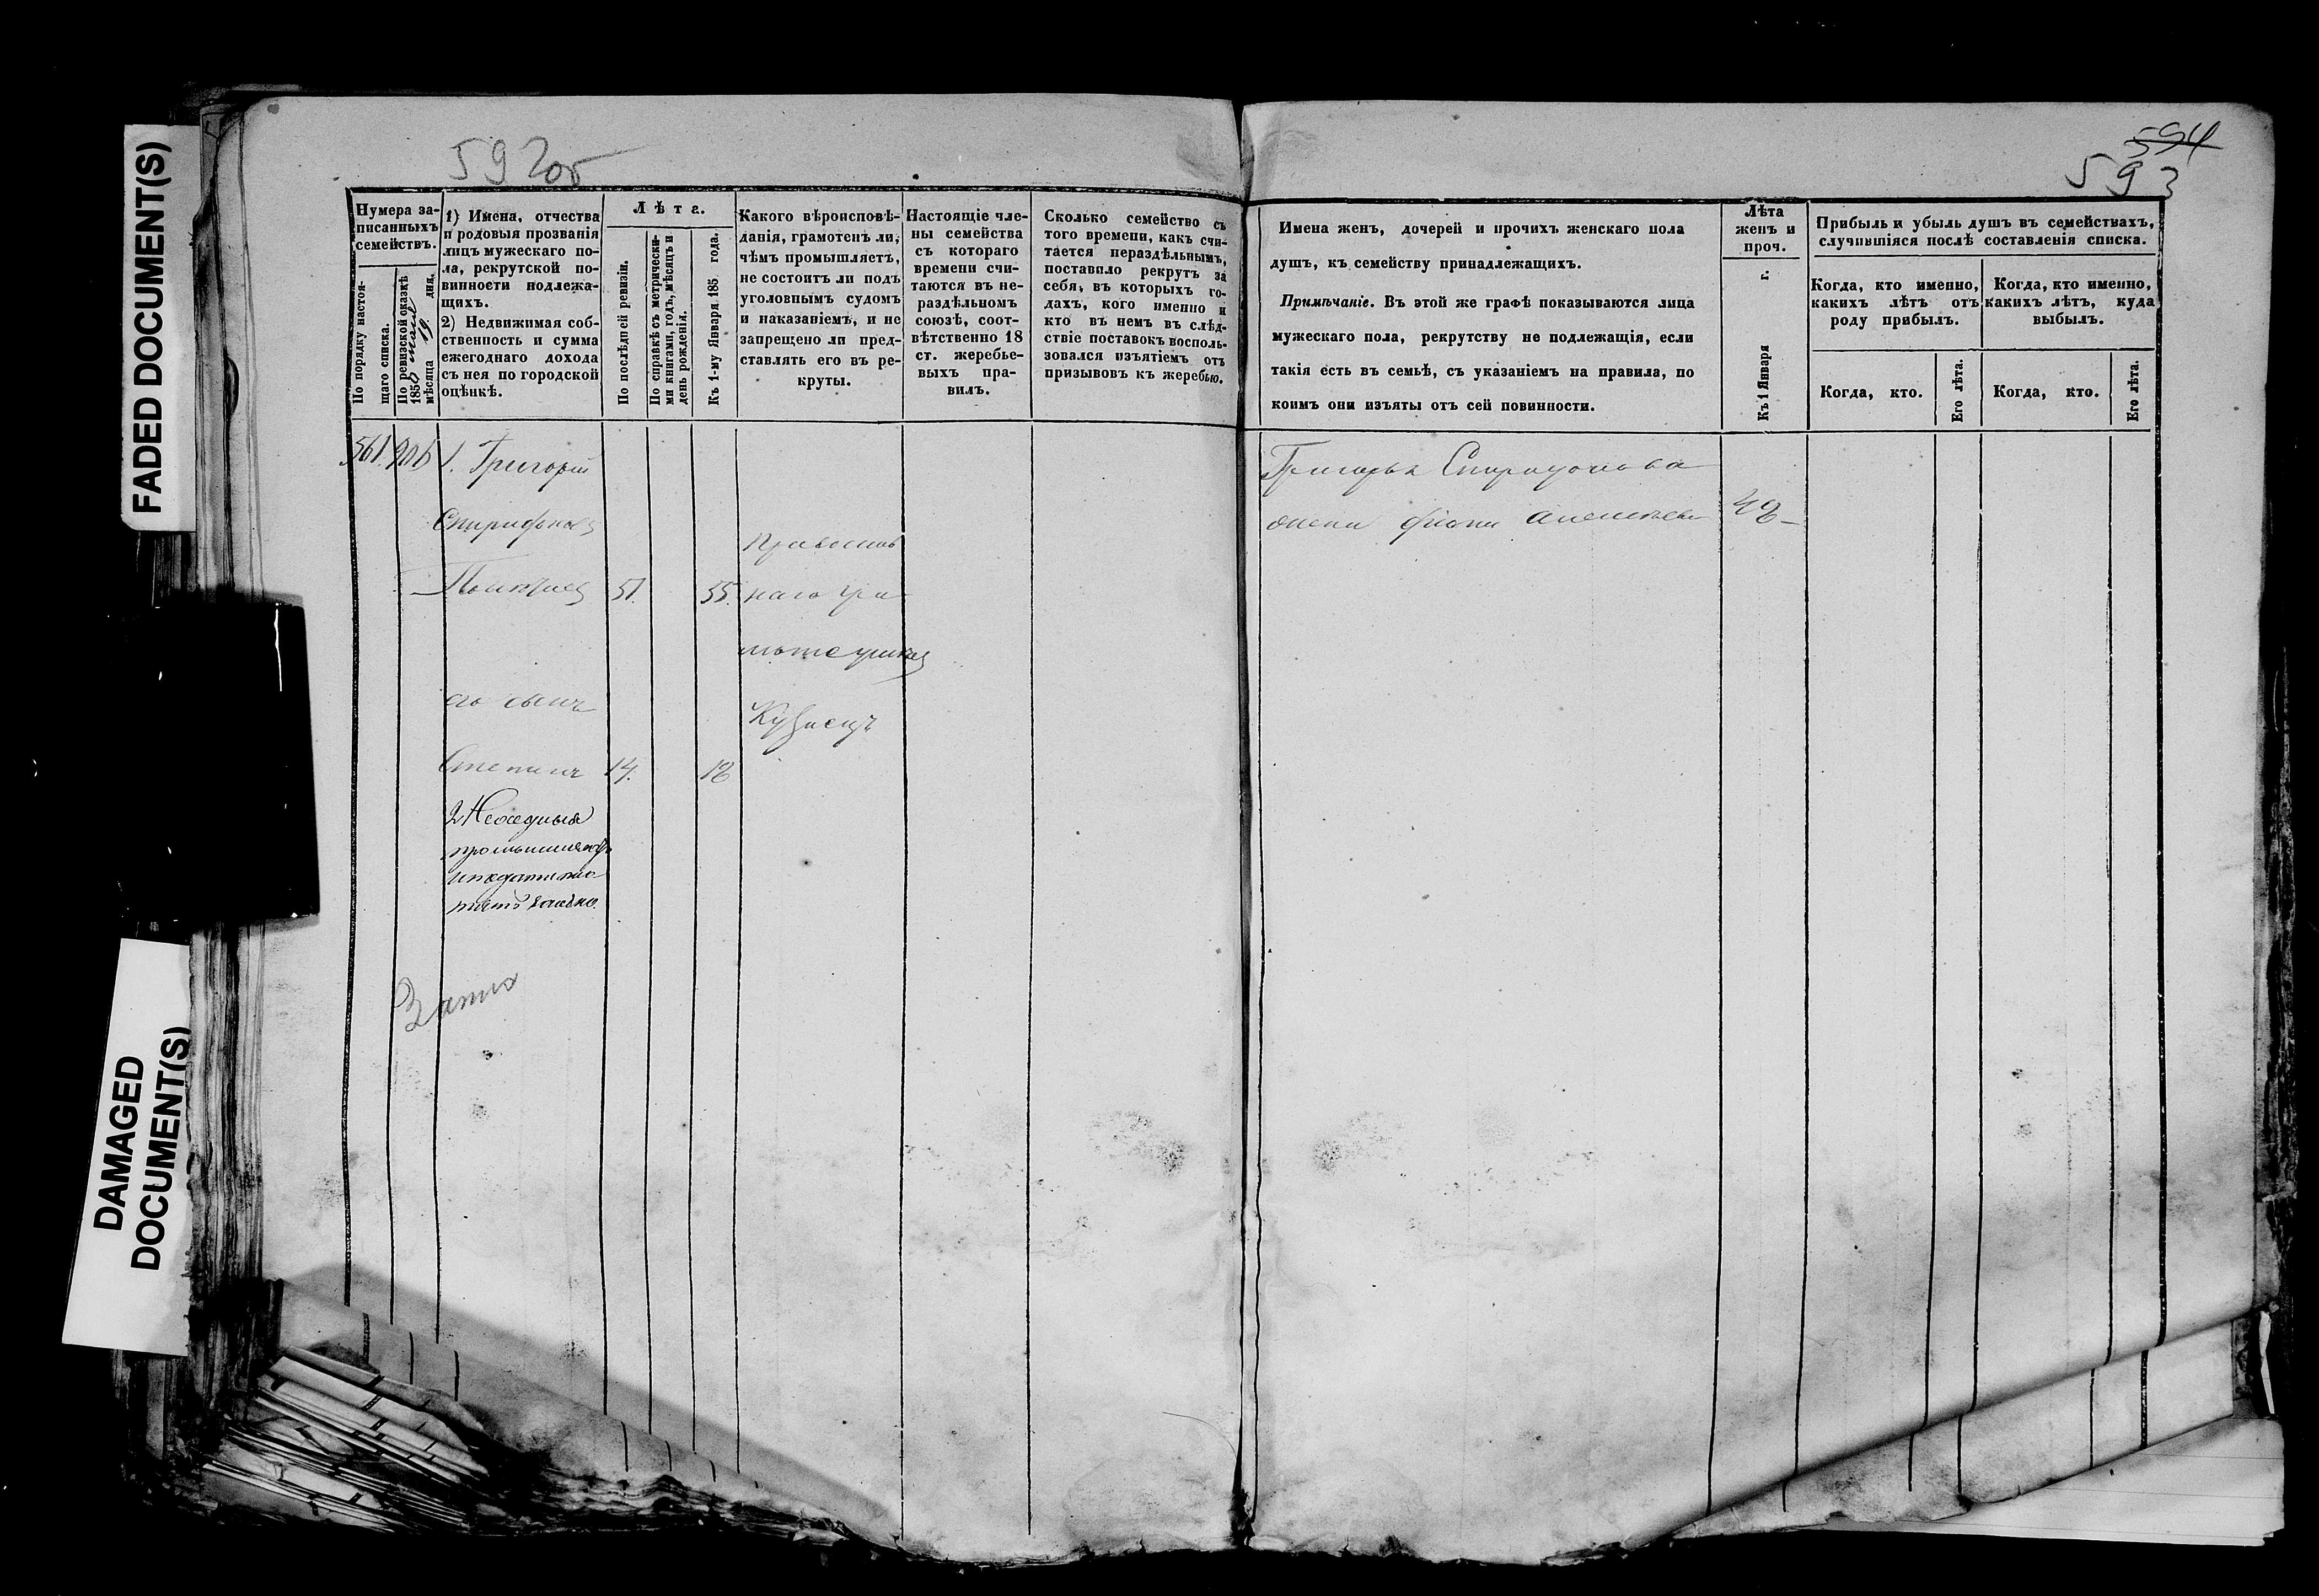 FADED DOCUMENT(S)
DAMAGED
DOCUMENT(S)
592об
594
593
Нумера за-
писанныхъ
семействъ.
По порядку настоя-
щаго списка.
По ревизской сказкѣ
1850
мѣсяца 19 дня.
1) Имена, отчества
и родовыя прозванія
лицъ мужескаго по-
ла, рекрутской по-
винности подлежа-
щихъ.
2) Недвижимая соб-
ственность и сумма
ежегоднаго дохода
съ нея по городской
оцѣнкѣ.
Лѣта.
По послѣдней ревизіи.
По справкѣ съ метрически-
ми книгами, годъ, мѣсяцъ и
день рожденія.
Къ 1-му Января 185 года.
Какого вѣроисповѣ-
данія, грамотенъ ли,
чѣмъ промышляетъ,
не состоитъ ли подъ
уголовнымъ судомъ
и наказаніемъ, и не
запрещено ли пред-
ставлять его въ ре-
круты.
Настоящіе чле-
ны семейства
съ котораго
времени счи-
таются въ не-
раздѣльномъ
союзѣ, соот-
вѣтственно 18
ст. жеребье-
выхъ пра-
вилъ.
Сколько семейство съ
того времени, какъ счи-
тается нераздѣльнымъ,
поставило рекрутъ за
себя, въ которыхъ го-
дахъ, кого именно и
кто въ немъ въ слѣд-
ствіе поставокъ восполь-
зовался изъятіемъ отъ
призывовъ къ жеребью.
Имена женъ, дочерей и прочихъ женскаго пола
душъ, къ семейству принадлежащихъ.
Примѣчаніе. Въ этой же графѣ показываются лица
мужескаго пола, рекрутству не подлежащія, если
такія есть въ семьѣ, съ указаніемъ на правила, по
коимъ они изъяты отъ сей повинности.
Лѣта
женъ и
проч.
Къ 1 Января г.
Прибыль и убыль душъ въ семействахъ,
случившіяся послѣ составленія списка.
Когда, кто именно,
какихъ лѣтъ отъ
роду прибылъ.
Когда, кто именно,
какихъ лѣтъ, куда
выбылъ.
Когда, кто.
Его лѣта.
Когда, кто.
Его лѣта.
561. 906 1. Григорій
Спиридоновъ
51. 55.
Православ
наго гра
мотѣ
Кузнецъ
его сынъ
Степанъ 14. 18
2 Неоседлый
Григорья Спиридонова
жена 48